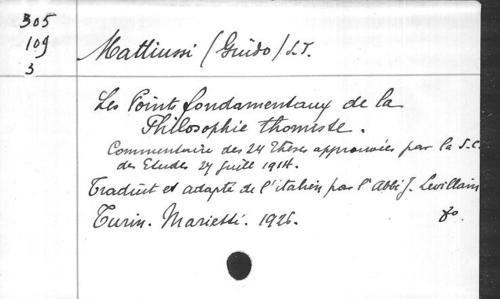 305
109
3
Mattiussi (Guido) S.J.
Les Points fondamentaux de la
Philosophie thomiste.
Commentaire des 24 thèses approuvées par la S.C.
des Etudes 27 Juill 1914.
Traduit et adapté de l'italien par l'Abbé J. Levillain
Turin. Marietti. 1926.